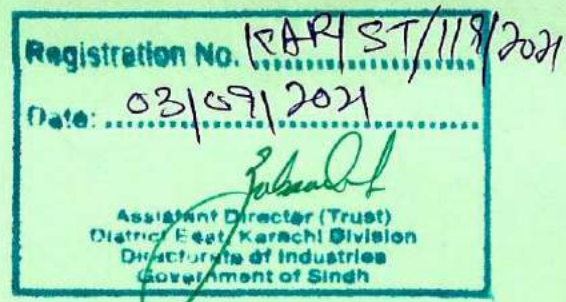 Registration No. KAR/ST/118/2021
Date: 03/09/2021
Assistant Director (Trust)
District East, Karachi Division
Directorate of Industries
Government of Sindh